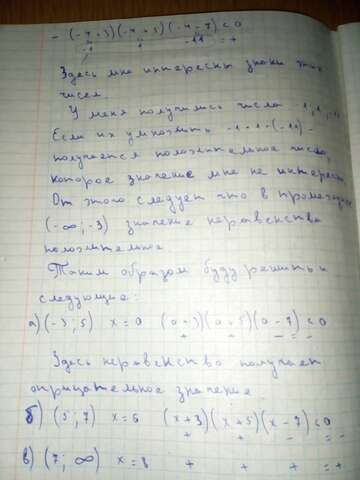 - (-4+3)(-4+5)(-4-7)<0
-1 1 -11 = +
Здесь мне интересны знаки этих
чисел.
У меня получились числа -1, 1,
Если их умножить -1·1·(-11) -
получается положительное число,
которое значение мне не интерес
От этого следует что в промежутке
(-∞;-3) значение неравенства
положительное
Таким образом буду решить и
следующие:
а) (-3;5) x=0 (0+3)(0+5)(0-7)<0
+ + - = -
Здесь неравенство получает
отрицательное значение
б) (5;7) x=6 (x+3)(x+5)(x-7)<0
+ + - = -
в) (7;∞) x=8 + + + = +